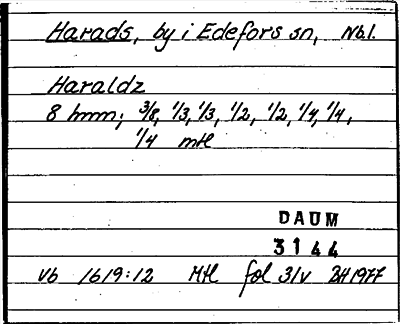 Harads, by i Edefors sn, Nb.l.
Haraldz
8 hmn; 3/8, 1/3, 1/3, 1/2, 1/2, 1/4, 1/4,
1/4 mtl
DAUM
3144
Vb 1619:12 Mtl fol 31v BH 1977